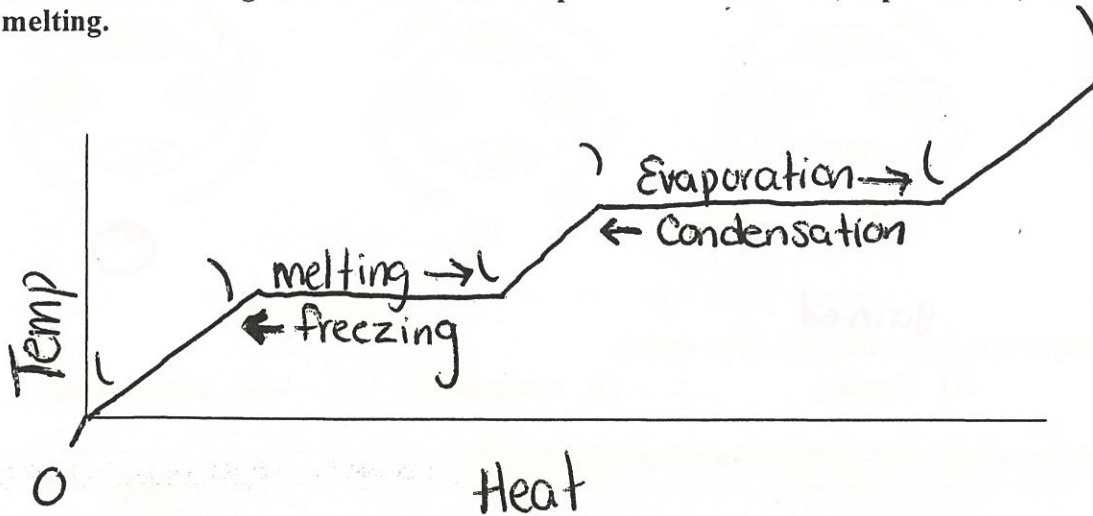 melting.
Evaporation →
← Condensation
melting →
← freezing
Temp
O
Heat